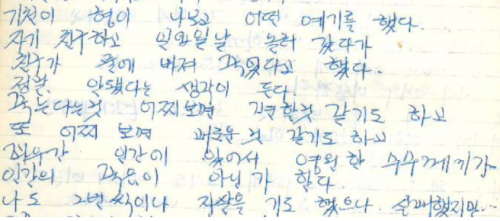 기천이 형이 나보고 어떤 얘기를 했다.
자기 친구하고 일요일날 놀러 갔다가
친구가 물에 빠져 죽었다고 했다.
정말 안됐다는 생각이 든다.
죽는다는것 어찌보면 간편할것 같기도 하고
또 어찌 보면 괴로운 것 같기도 하고
좌우간 인간이 있어서 영원한 수수께끼가
인간의 죽음이 아닌가 한다
나도 그번씩이나 자살을 기도 했으나 실패했지만…